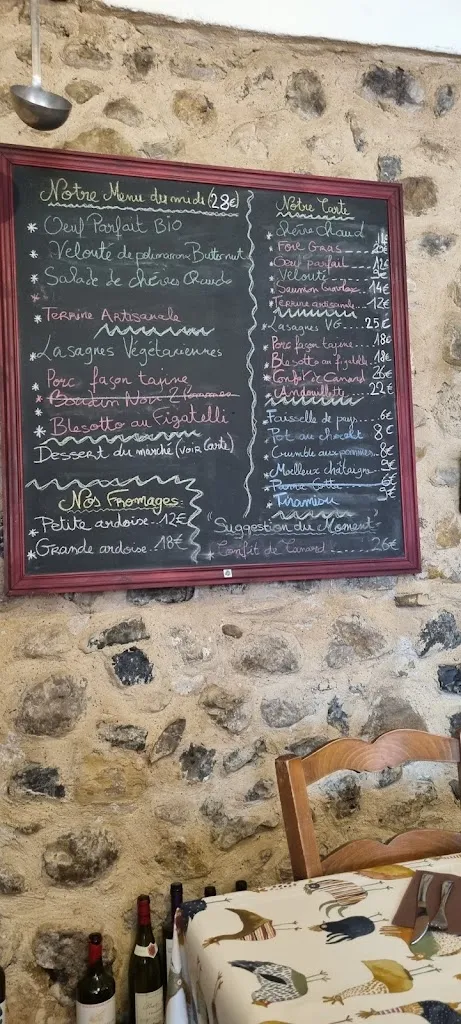 Notre Menu du midi (28€)
* Oeuf Parfait BIO
* Velouté de potimarron Butternut
* Salade de chèvres Chauds
* Terrine Artisanale
* Lasagnes Végétariennes
* Porc façon tajine
* Boudin Noir 2 Pommes
* Blesotto au Figatelli
Dessert du marché (voir Carte)
Nos Fromages:
* Petite ardoise..12€
* Grande ardoise..18€
Notre Carte
* Chèvre Chaud
* Foie Gras
* Oeuf parfait 12€
* Velouté
* Saumon Gravlax 14€
* Terrine artisanale 12€
* Lasagnes VG 25€
* Porc façon tajine 18€
* Blesotto au figatelli 18€
* Confit de Canard 26€
* Andouillette 22€
* Faisselle de pays 6€
* Pot au chocolat 8€
* Crumble aux pommes 8€
* Moelleux châtaigne
* Panna Cotta
* Tiramisu 9€
"Suggestion du Moment"
* Confit de Canard 26€